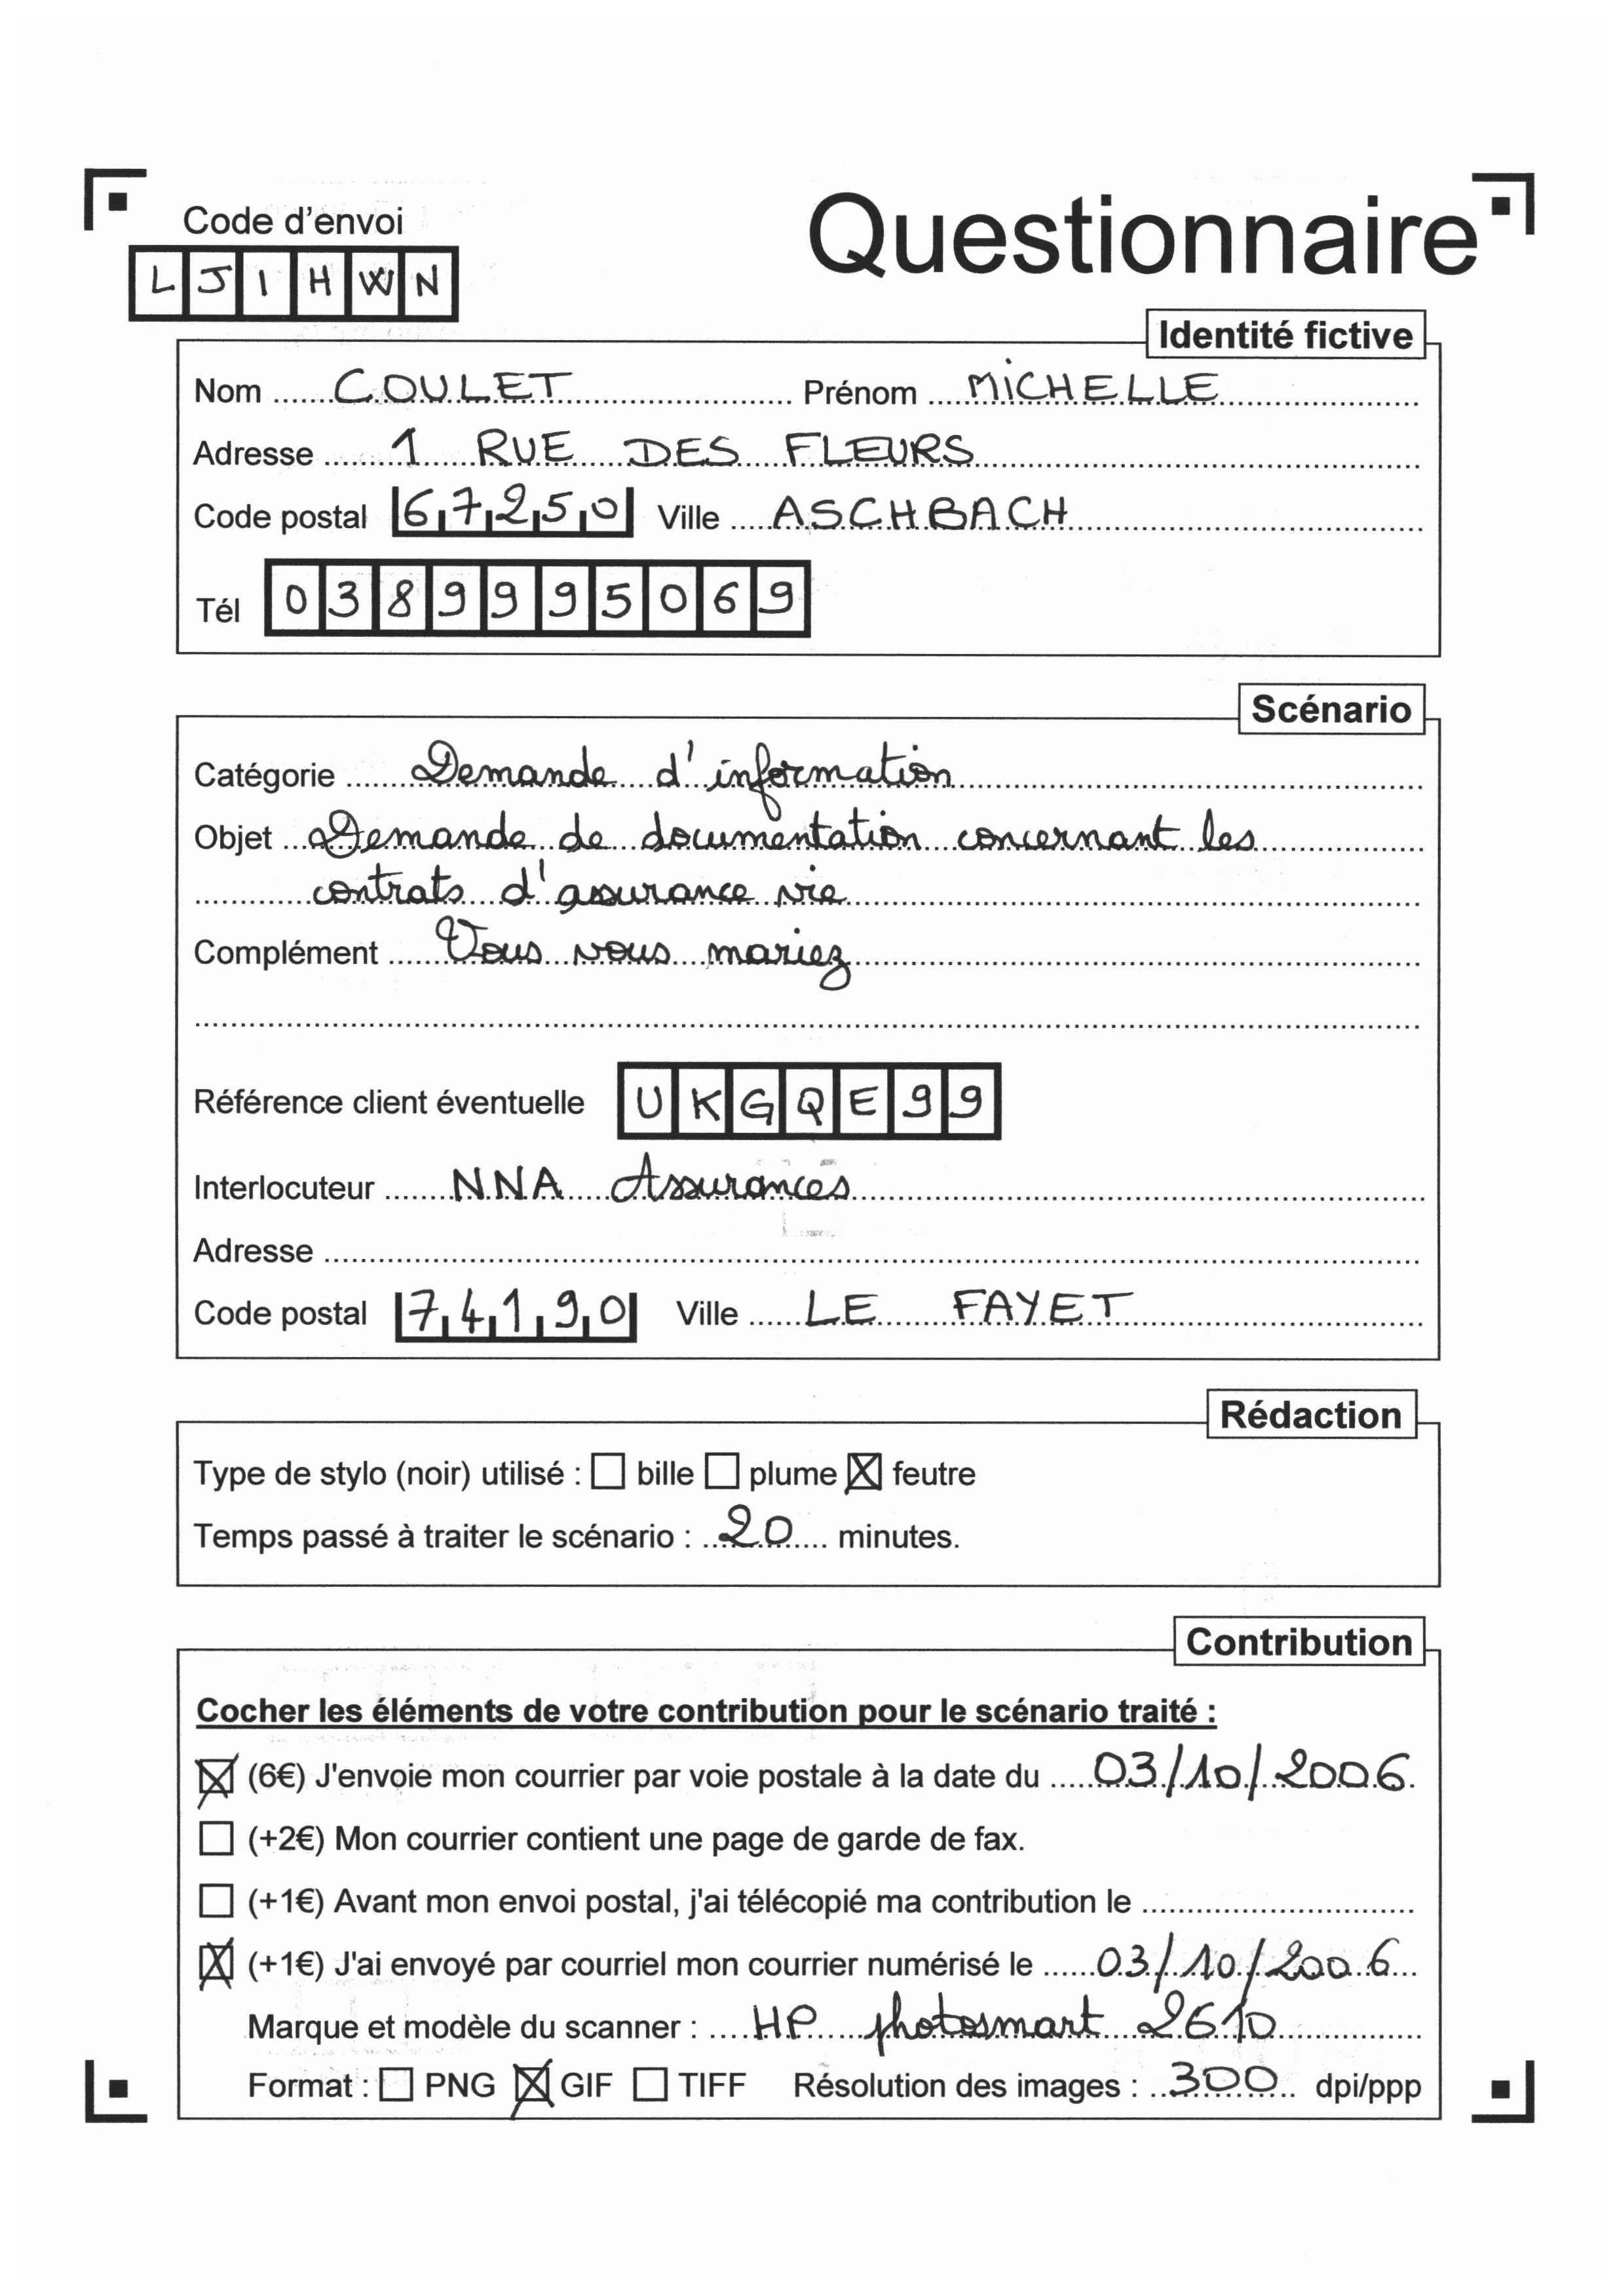 Code d'envoi
Questionnaire
LJIHWN
Identité fictive
Nom COULET Prénom MICHELLE
Adresse 1 RUE DES FLEURS
Code postal 67250 Ville ASCHBACH
Tél 0389995069
Scénario
Catégorie Demande d'information
Objet Demande de documentation concernant les
contrats d'assurance vie
Complément Vous vous mariez
Référence client éventuelle UKGQE99
Interlocuteur NNA Assurances
Adresse
Code postal 74190 Ville LE FAYET
Rédaction
Type de stylo (noir) utilisé : ☐ bille ☐ plume ☒ feutre
Temps passé à traiter le scénario : 20 minutes.
Contribution
Cocher les éléments de votre contribution pour le scénario traité :
☒ (6€) J'envoie mon courrier par voie postale à la date du 03/10/2006.
☐ (+2€) Mon courrier contient une page de garde de fax.
☐ (+1€) Avant mon envoi postal, j'ai télécopié ma contribution le
☒ (+1€) J'ai envoyé par courriel mon courrier numérisé le 03/10/2006
Marque et modèle du scanner : HP photosmart 2610
Format : ☐ PNG ☒ GIF ☐ TIFF Résolution des images : 300 dpi/ppp